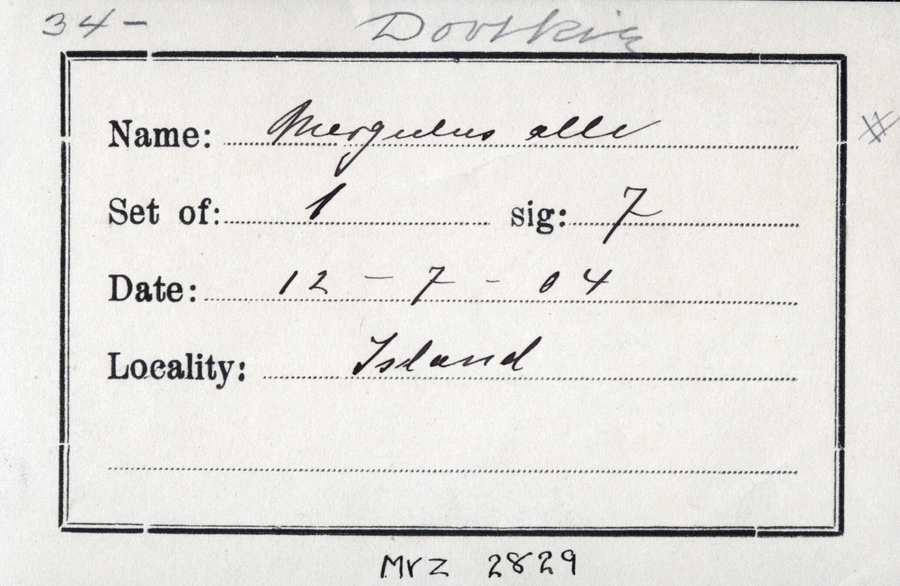 34-
Name: Mergulus alle
#
Set of: 1 sig: 7
Date: 12 - 7 - 04
Locality: Island
MVZ 2829